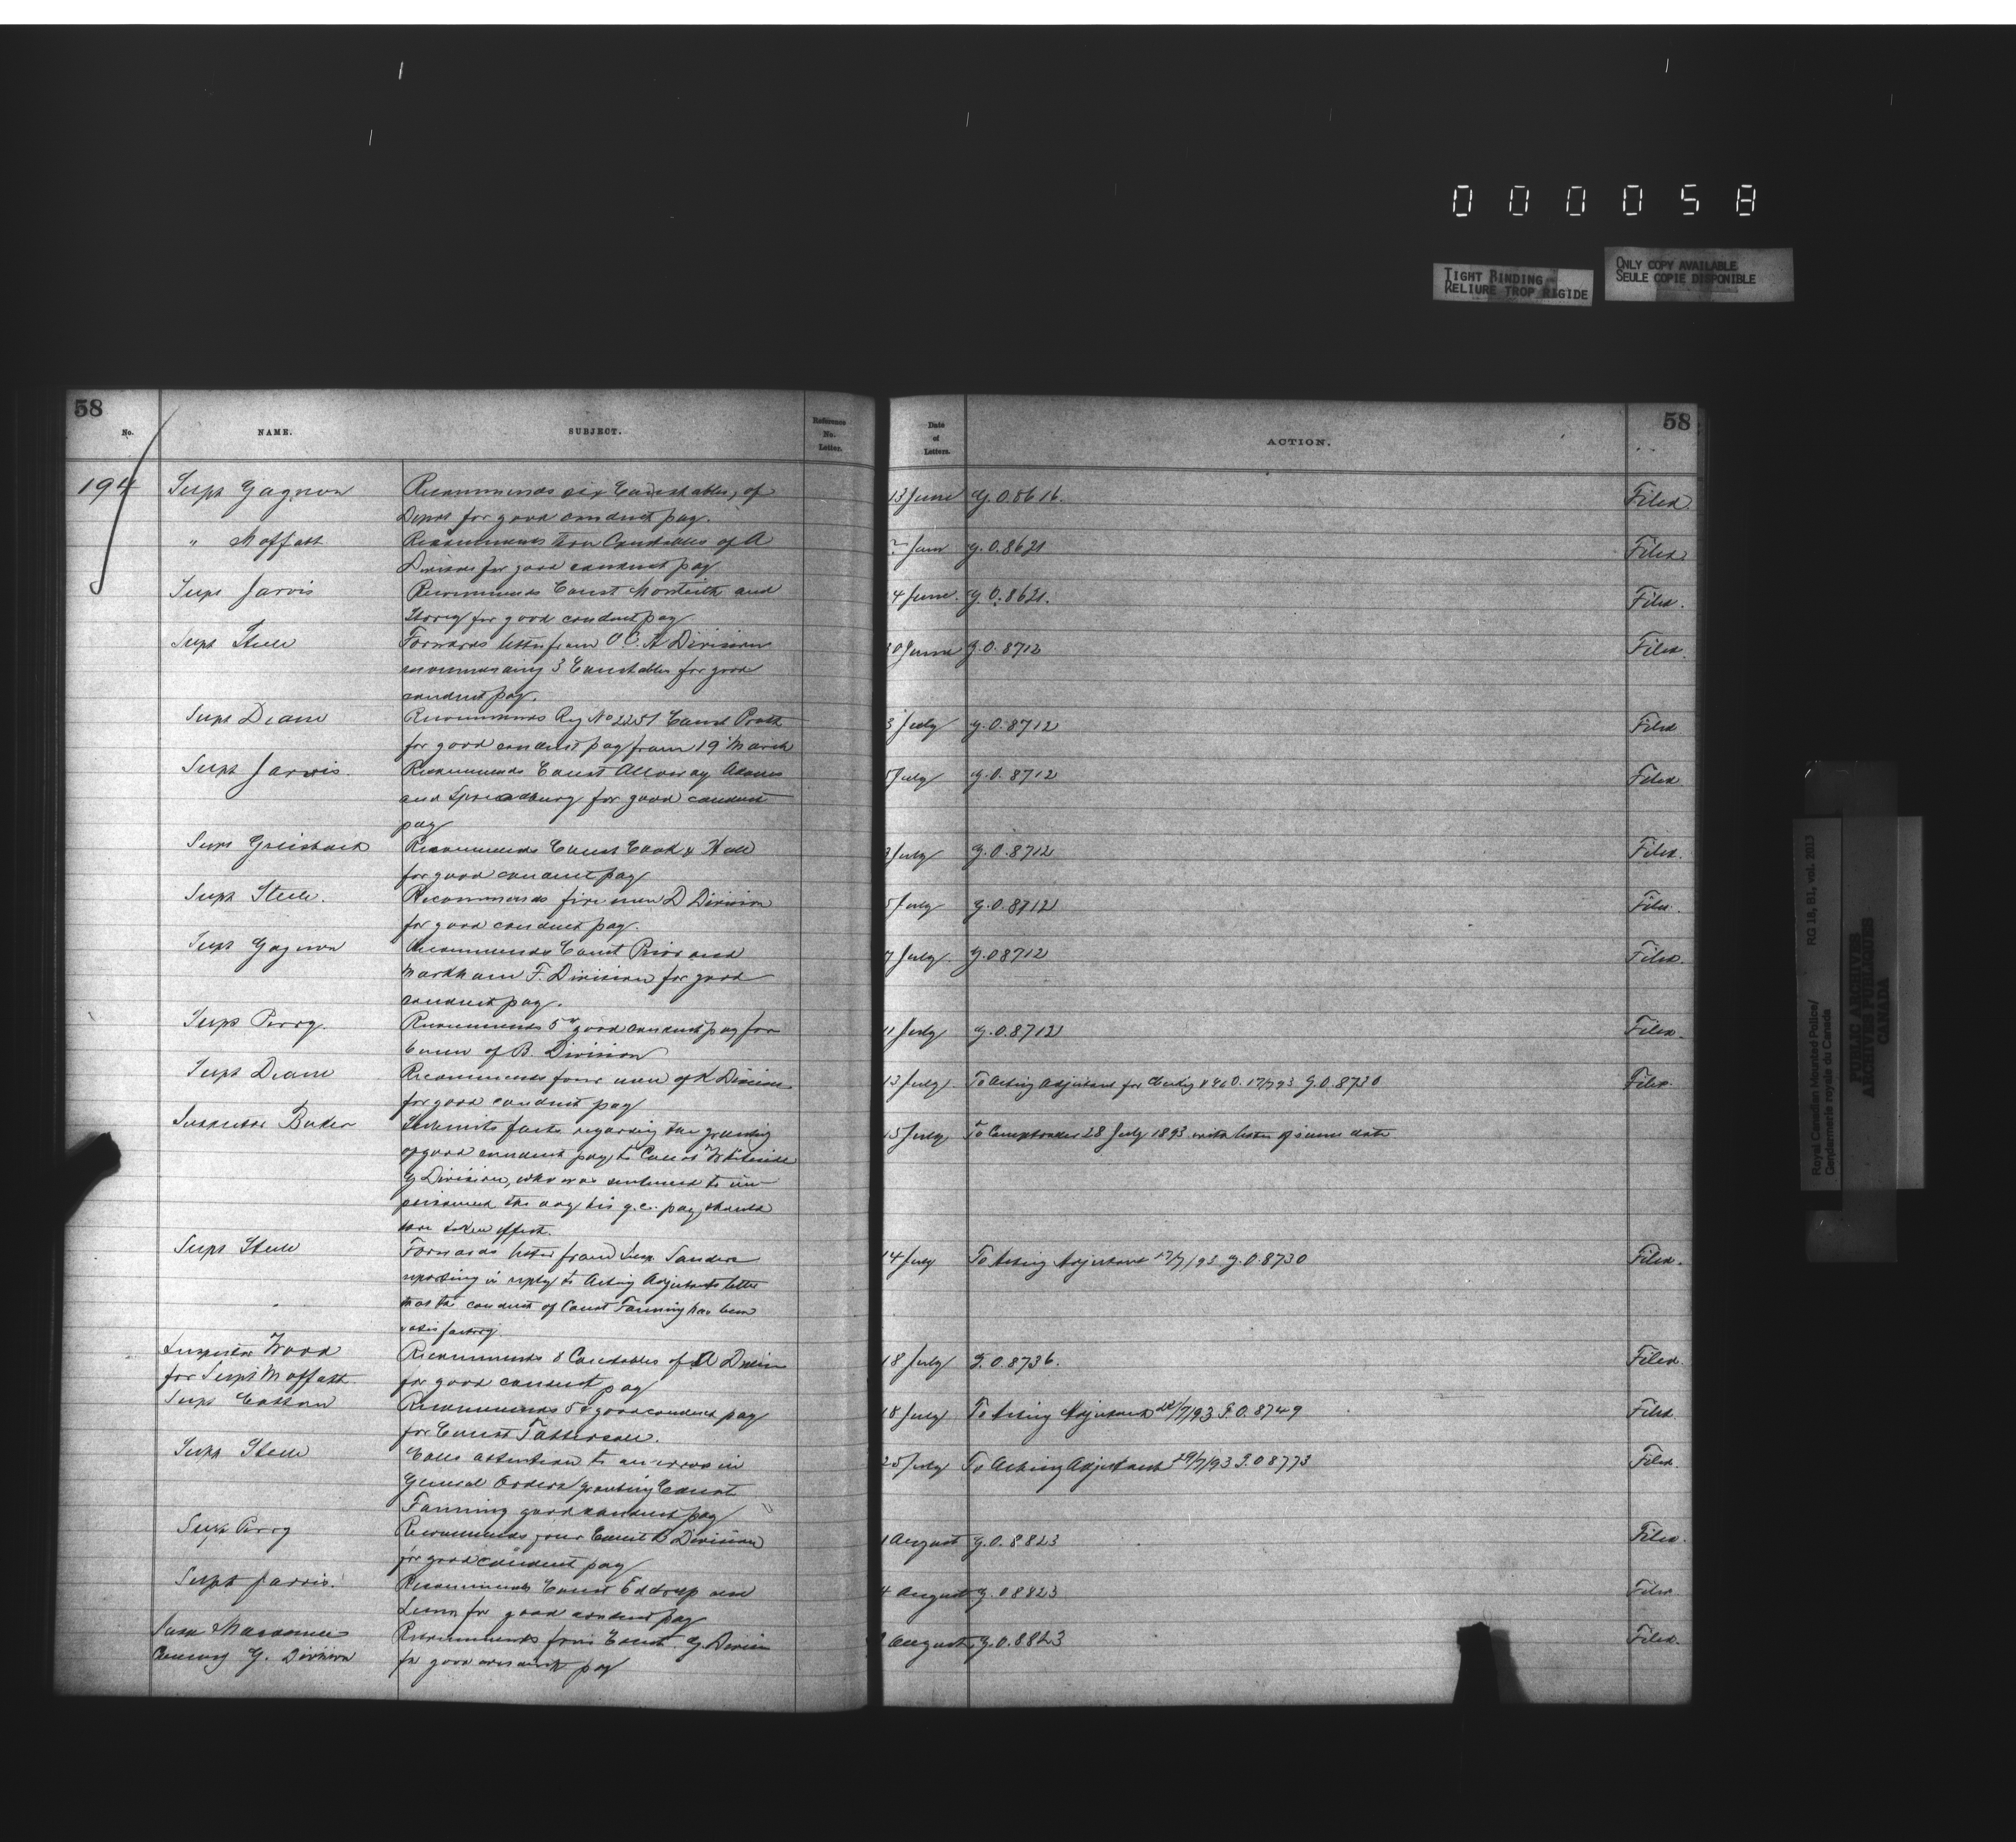 000058
TIGHT BINDING
RELIURE TROP RIGIDE
ONLY COPY AVAILABLE
SEULE COPIE DISPONIBLE
58
No. NAME. SUBJECT. Reference No. Letter.
Date of Letters. ACTION.
58
194 Supt Gagnon Recommends six Constables, of 13 June G.O. 8616. Filed
Depot for good conduct pay.
" Moffatt Recommends Constables of A June G.O. 8621 Filed
Division for good conduct pay
Supt Jarvis Recommends Const Monteith and 4 June G.O. 8621. Filed.
Storey for good conduct pay
Supt Steele Forwards letter from O.C. Division 0 June G.O. 8712 Filed.
recommending 3 Constables for good
conduct pay.
Supt Deane Recommends Reg No 2251 Const 3 July G.O. 8712 Filed
for good conduct pay from 19 March
Supt Jarvis. Recommends Const Alloway Adams 5 July G.O. 8712 Filed
and Spreadbury for good conduct
pay
Supt Griesbach Recommends Const Cook & Hall July G.O. 8712 Filed.
for good conduct pay
Supt Steele. Recommends five men D Division 5 July G.O. 8712 Filed.
for good conduct pay.
Supt Gagnon Recommends Const Prior and 7 July G.O. 8712 Filed.
Markham F. Division for good
conduct pay.
Supt Perry. Recommends 5¢ good conduct pay for 11 July G.O. 8712 Filed.
of B. Division
Supt Deane Recommends four men of K Division 13 July. To Acting Adjutant for 17/7/93 G.O. 8730 Filed.
for good conduct pay
Inspector Baker Submits facts regarding the granting 15 July To Comptroller 28 July 1893 with letter of same date
of good conduct pay to Const Whiteside
G Division, who was sentenced to im-
prisonment the day his g.c. pay should
have taken effect.
Supt Steele Forwards letter from Insp. Sanders 14 July To Acting Adjutant 17/7/93 G.O. 8730 Filed.
reporting in reply to Acting Adjutants letter
that the conduct of Const Fanning has been
satisfactory.
Inspector Wood Recommends 8 Constables of A Division 18 July G.O. 8736. Filed.
for Supt Moffatt for good conduct pay
Supt Cotton Recommends 5¢ good conduct pay 18 July To Acting Adjutant 22/7/93 G.O. 8749 Filed.
for Const Patterson.
Supt Steele Calls attention to an error in 25 July To Acting Adjutant 29/7/93 G.O. 8773 Filed.
General Orders granting Const
Fanning good conduct pay
Supt Perry Recommends four Const B Division 1 August G.O. 8823 Filed.
for good conduct pay
Supt Jarvis. Recommends Const Eddrup and 4 August G.O. 8823 Filed.
Lunn for good conduct pay
Recommends Const. G. Division August G.O. 8823 Filed.
G. Division for good conduct pay
Royal Canadian Mounted Police/ RG 18, B1, vol. 2013
Gendarmerie royale du Canada
PUBLIC ARCHIVES
ARCHIVES PUBLIQUES
CANADA